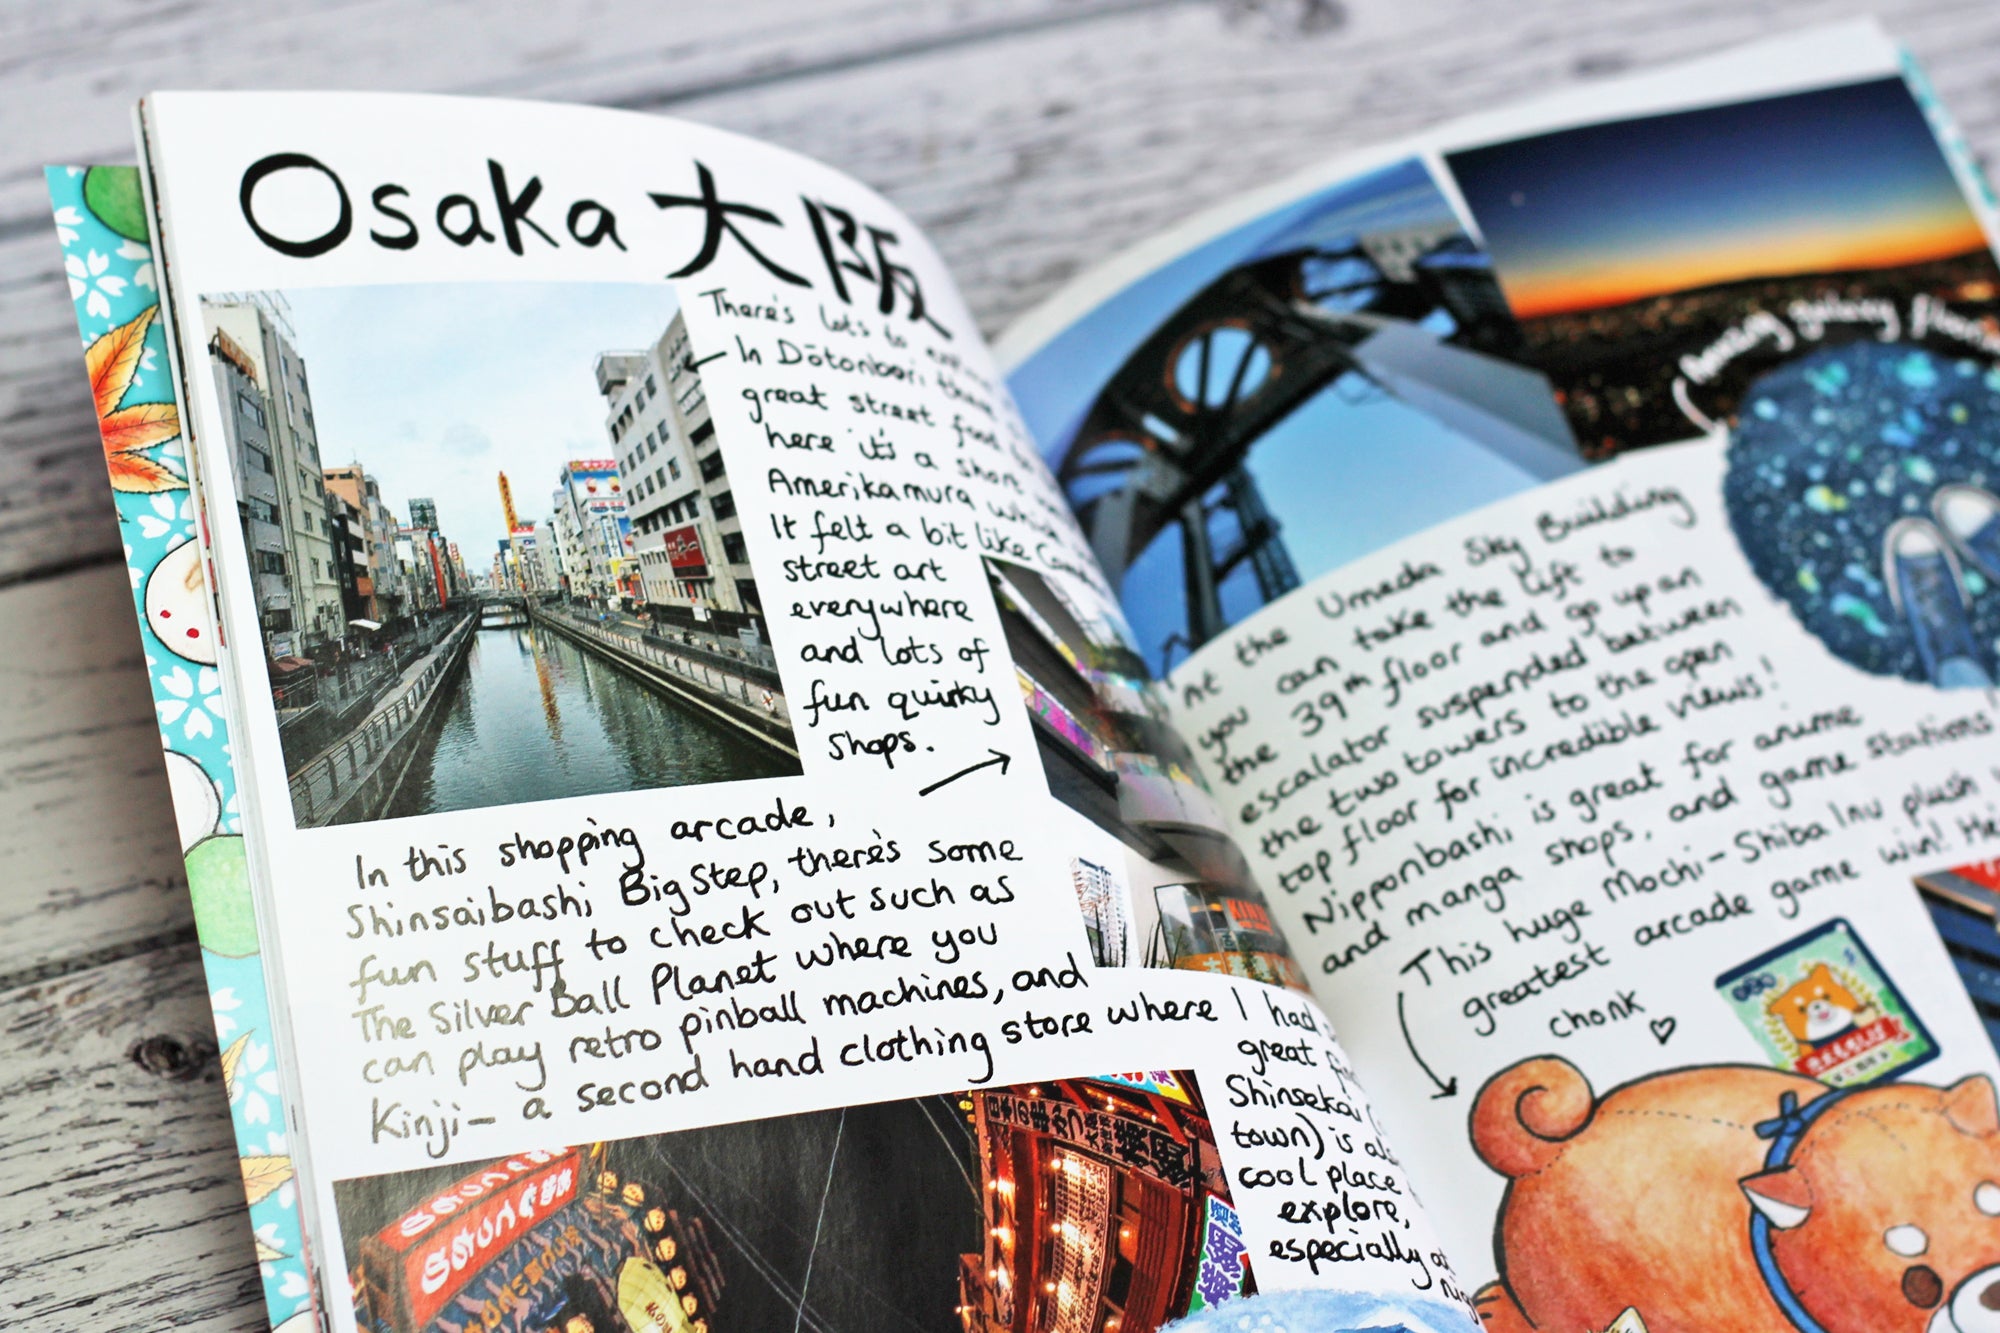 Osaka 大阪
There's lots to
In Dōtonbori
great street food
here it's a short
Amerikamura
It felt a bit like
street art
everywhere
and lots of
fun quirky
shops.
In this shopping arcade,
Shinsaibashi Big Step, there's some
fun stuff to check out such as
The Silver Ball Planet where you
can play retro pinball machines, and
Kinji - a second hand clothing store where I had
great
Shinsekai
town) is
cool place
explore,
especially
Amazing galaxy floor
At the Umeda Sky Building
you can take the lift to
the 39th floor and go up an
escalator suspended between
the two towers to the open
top floor for incredible views!
Nipponbashi is great for anime
and manga shops, and game stations!
This huge Mochi-Shiba Inu plush
greatest arcade game win!
chonk